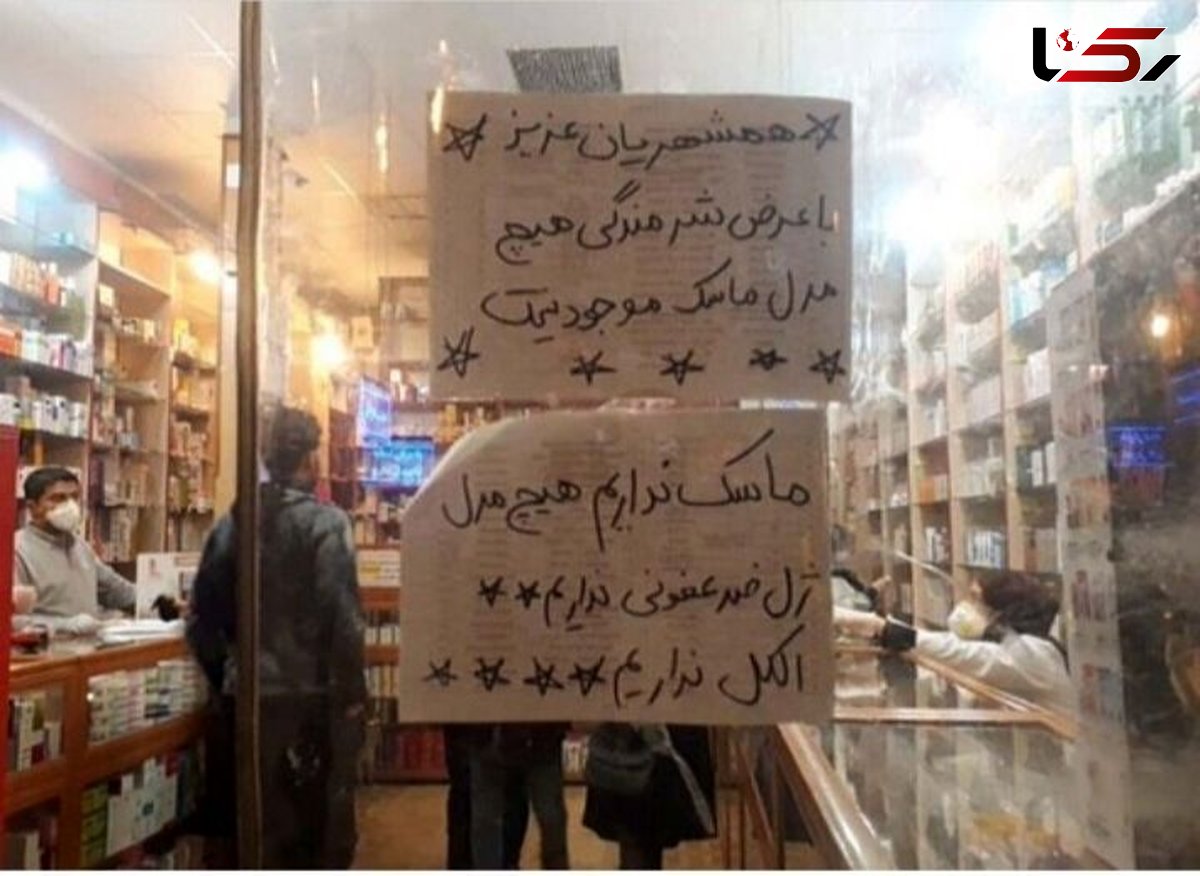 رکنا
همشهریان عزیز
با عرض شرمندگی هیچ
مدل ماسک موجود نیست
ماسک نداریم هیچ مدل
ژل ضد عفونی نداریم
الکل نداریم